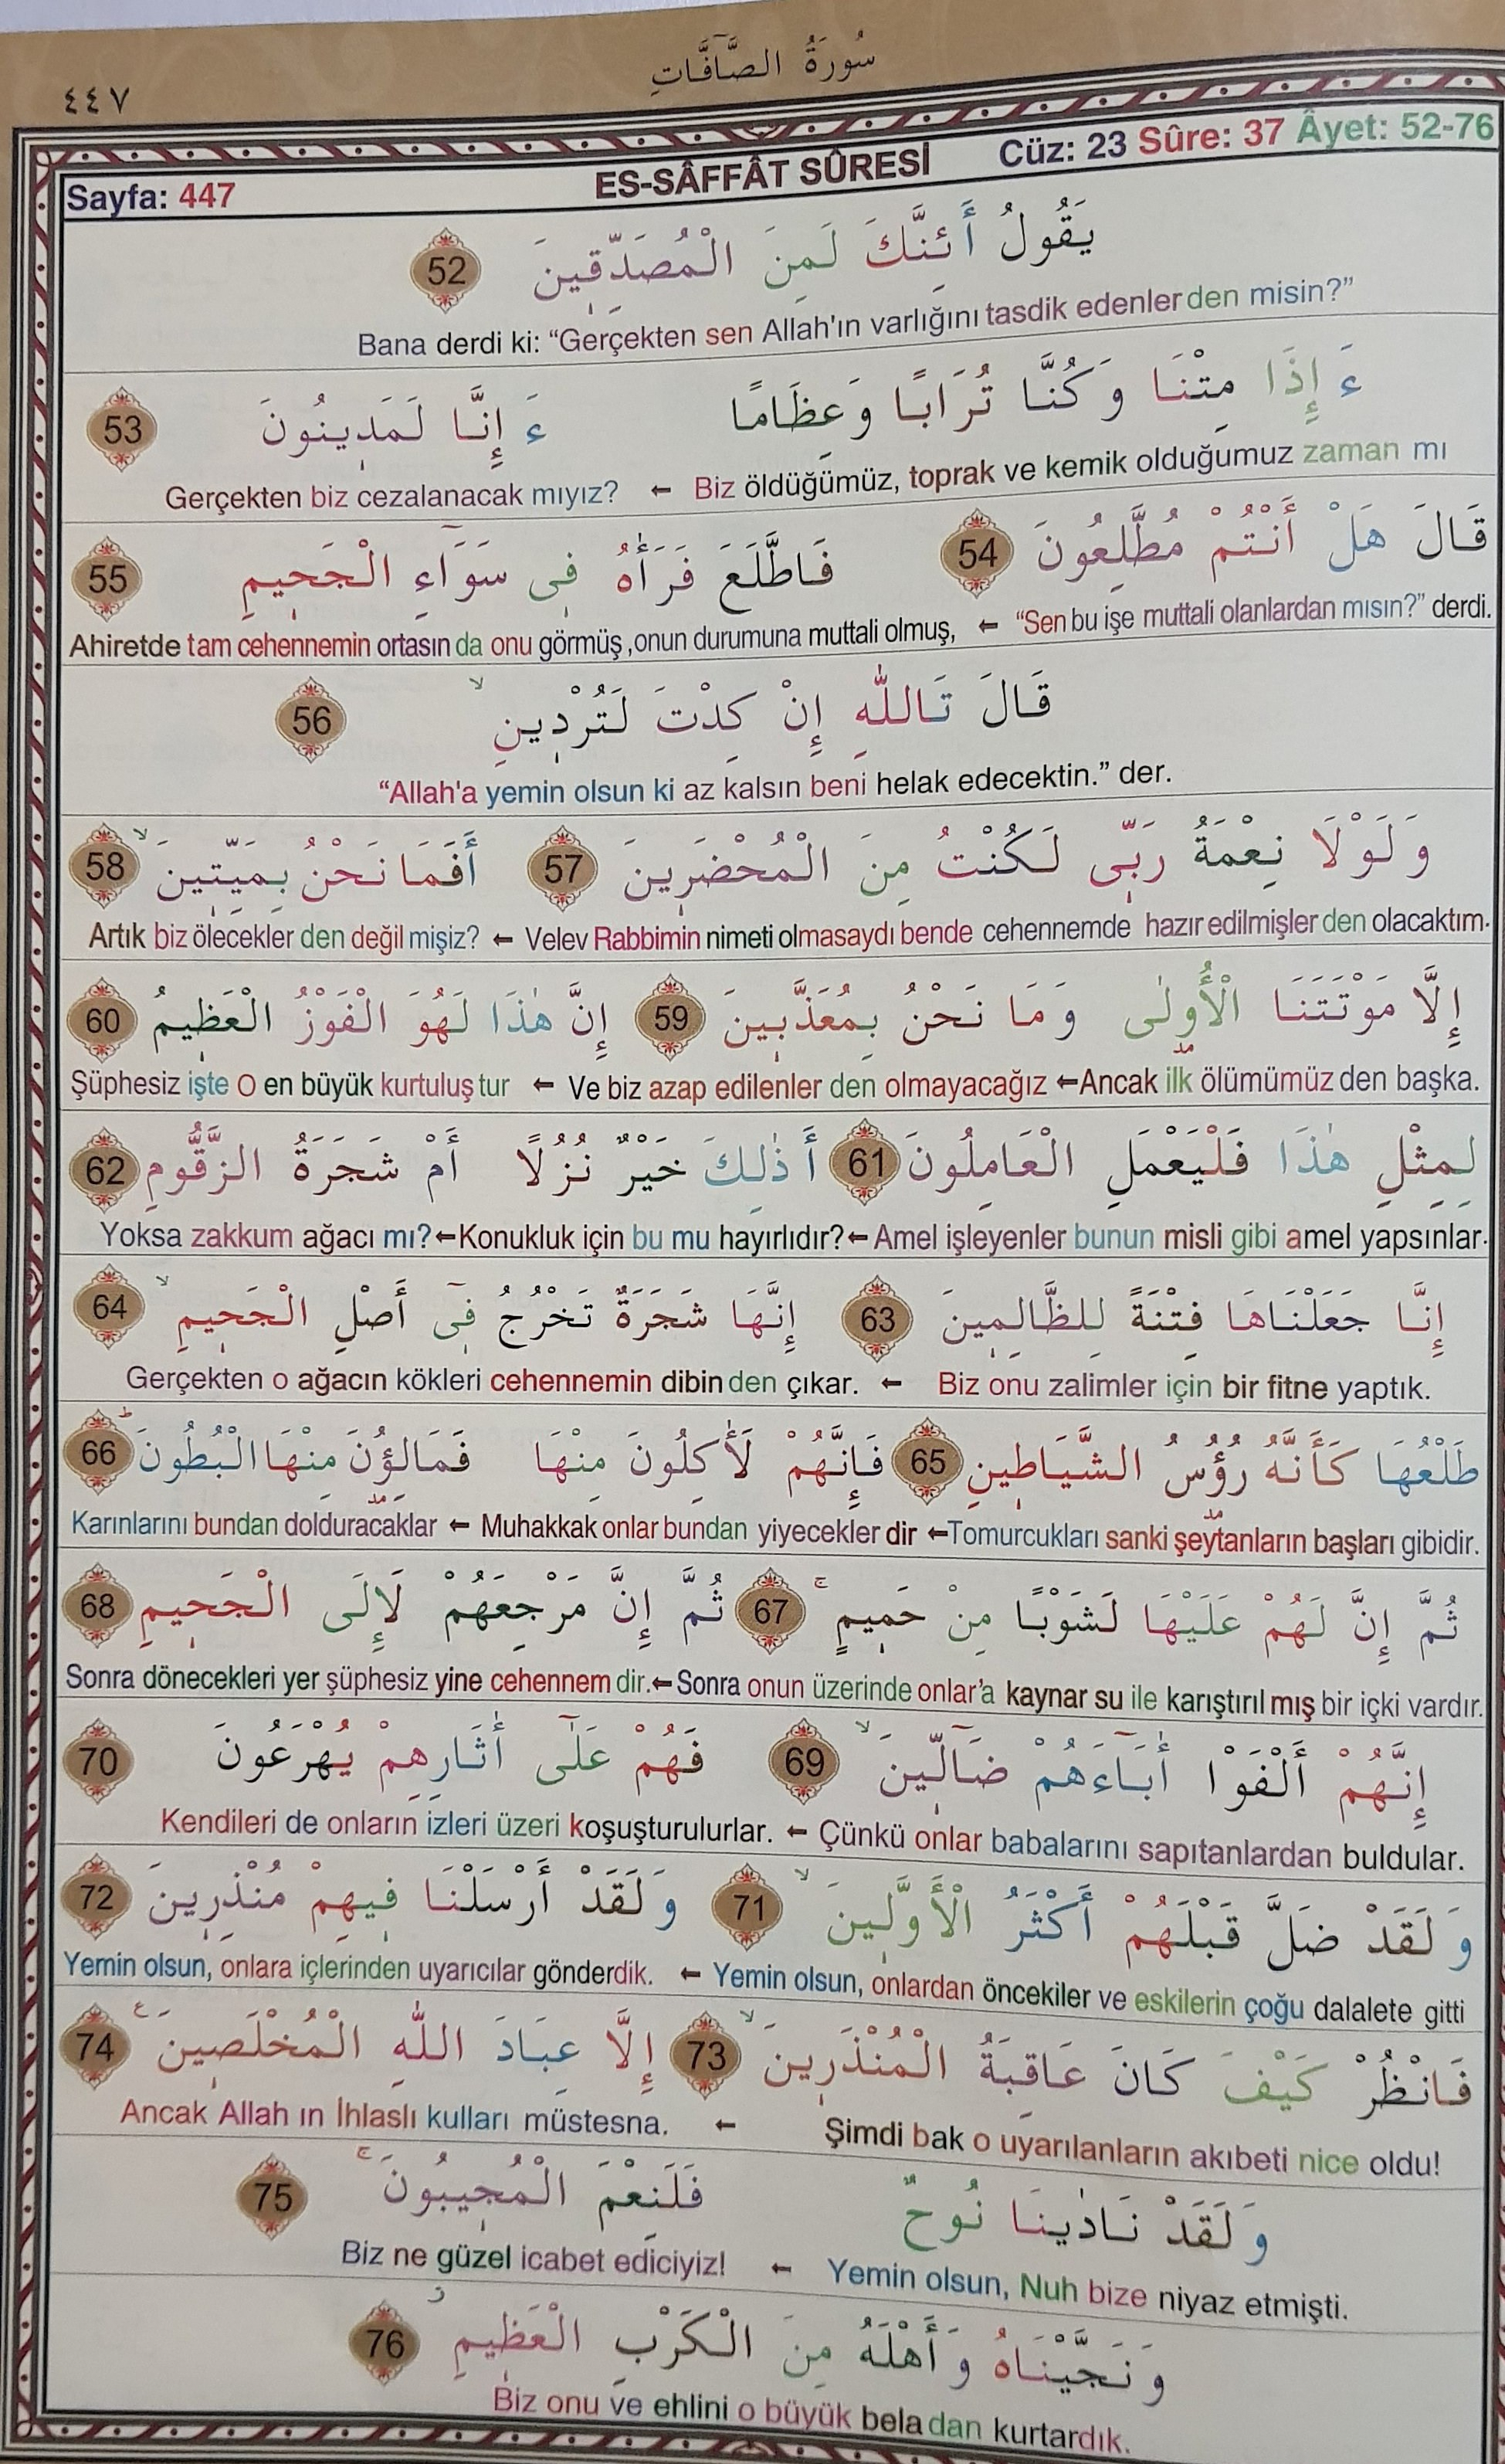 سُورَةُ الصَّٓافَّاتِ
٤٤٧
Sayfa: 447 ES-SÂFFÂT SÛRESİ Cüz: 23 Sûre: 37 Âyet: 52-76
يَقُولُ أَئِنَّكَ لَمِنَ الْمُصَدِّقِينَ 52
Bana derdi ki: “Gerçekten sen Allah'ın varlığını tasdik edenler den misin?”
ءَ إِذَا مِتْنَا وَ كُنَّا تُرَابًا وَ عِظَامًا ءَ إِنَّا لَمَدِينُونَ 53
Gerçekten biz cezalanacak mıyız? ← Biz öldüğümüz, toprak ve kemik olduğumuz zaman mı
قَالَ هَلْ أَنْتُمْ مُطَّلِعُونَ 54 فَاطَّلَعَ فَرَاٰهُ فِى سَوَٓاءِ الْجَحِيمِ 55
Ahiretde tam cehennemin ortasın da onu görmüş ,onun durumuna muttali olmuş, ← “Sen bu işe muttali olanlardan mısın?” derdi.
قَالَ تَاللّٰهِ إِنْ كِدْتَ لَتُرْدِينِ ۙ 56
“Allah'a yemin olsun ki az kalsın beni helak edecektin.” der.
وَ لَوْلَا نِعْمَةُ رَبِّى لَكُنْتُ مِنَ الْمُحْضَرِينَ 57 أَفَمَا نَحْنُ بِمَيِّتِينَ ۙ 58
Artık biz ölecekler den değil mişiz? ← Velev Rabbimin nimeti olmasaydı bende cehennemde hazır edilmişler den olacaktım.
إِلَّا مَوْتَتَنَا الْأُولٰى وَ مَا نَحْنُ بِمُعَذَّبِينَ 59 إِنَّ هٰذَا لَهُوَ الْفَوْزُ الْعَظِيمُ 60
Şüphesiz işte O en büyük kurtuluş tur ← Ve biz azap edilenler den olmayacağız ←Ancak ilk ölümümüz den başka.
لِمِثْلِ هٰذَا فَلْيَعْمَلِ الْعَامِلُونَ 61 أَ ذٰلِكَ خَيْرٌ نُزُلًا أَمْ شَجَرَةُ الزَّقُّومِ 62
Yoksa zakkum ağacı mı?←Konukluk için bu mu hayırlıdır?← Amel işleyenler bunun misli gibi amel yapsınlar.
إِنَّا جَعَلْنَاهَا فِتْنَةً لِلظَّالِمِينَ 63 إِنَّهَا شَجَرَةٌ تَخْرُجُ فِٓى أَصْلِ الْجَحِيمِ ۙ 64
Gerçekten o ağacın kökleri cehennemin dibin den çıkar. ← Biz onu zalimler için bir fitne yaptık.
طَلْعُهَا كَأَنَّهُ رُؤُسُ الشَّيَاطِينِ 65 فَإِنَّهُمْ لَأٰكِلُونَ مِنْهَا فَمَالِؤُنَ مِنْهَا الْبُطُونَ ۜ 66
Karınlarını bundan dolduracaklar ← Muhakkak onlar bundan yiyecekler dir ←Tomurcukları sanki şeytanların başları gibidir.
ثُمَّ إِنَّ لَهُمْ عَلَيْهَا لَشَوْبًا مِنْ حَمِيمٍ ۚ 67 ثُمَّ إِنَّ مَرْجِعَهُمْ لَإِلَى الْجَحِيمِ 68
Sonra dönecekleri yer şüphesiz yine cehennem dir.←Sonra onun üzerinde onlar'a kaynar su ile karıştırıl mış bir içki vardır.
إِنَّهُمْ أَلْفَوْا أٰبَٓاءَهُمْ ضَٓالِّينَ ۙ 69 فَهُمْ عَلٰٓى أٰثَارِهِمْ يُهْرَعُونَ 70
Kendileri de onların izleri üzeri koşuşturulurlar. ← Çünkü onlar babalarını sapıtanlardan buldular.
وَ لَقَدْ ضَلَّ قَبْلَهُمْ أَكْثَرُ الْأَوَّلِينَ ۙ 71 وَ لَقَدْ أَرْسَلْنَا فِيهِمْ مُنْذِرِينَ 72
Yemin olsun, onlara içlerinden uyarıcılar gönderdik. ← Yemin olsun, onlardan öncekiler ve eskilerin çoğu dalalete gitti
فَانْظُرْ كَيْفَ كَانَ عَاقِبَةُ الْمُنْذَرِينَ ۙ 73 إِلَّا عِبَادَ اللّٰهِ الْمُخْلَصِينَ ع 74
Ancak Allah ın İhlaslı kulları müstesna. ← Şimdi bak o uyarılanların akıbeti nice oldu!
وَ لَقَدْ نَادٰينَا نُوحٌ فَلَنِعْمَ الْمُجِيبُونَ ۚ 75
Biz ne güzel icabet ediciyiz! ← Yemin olsun, Nuh bize niyaz etmişti.
وَ نَجَّيْنَاهُ وَ أَهْلَهُ مِنَ الْكَرْبِ الْعَظِيمِ ز 76
Biz onu ve ehlini o büyük bela dan kurtardık.